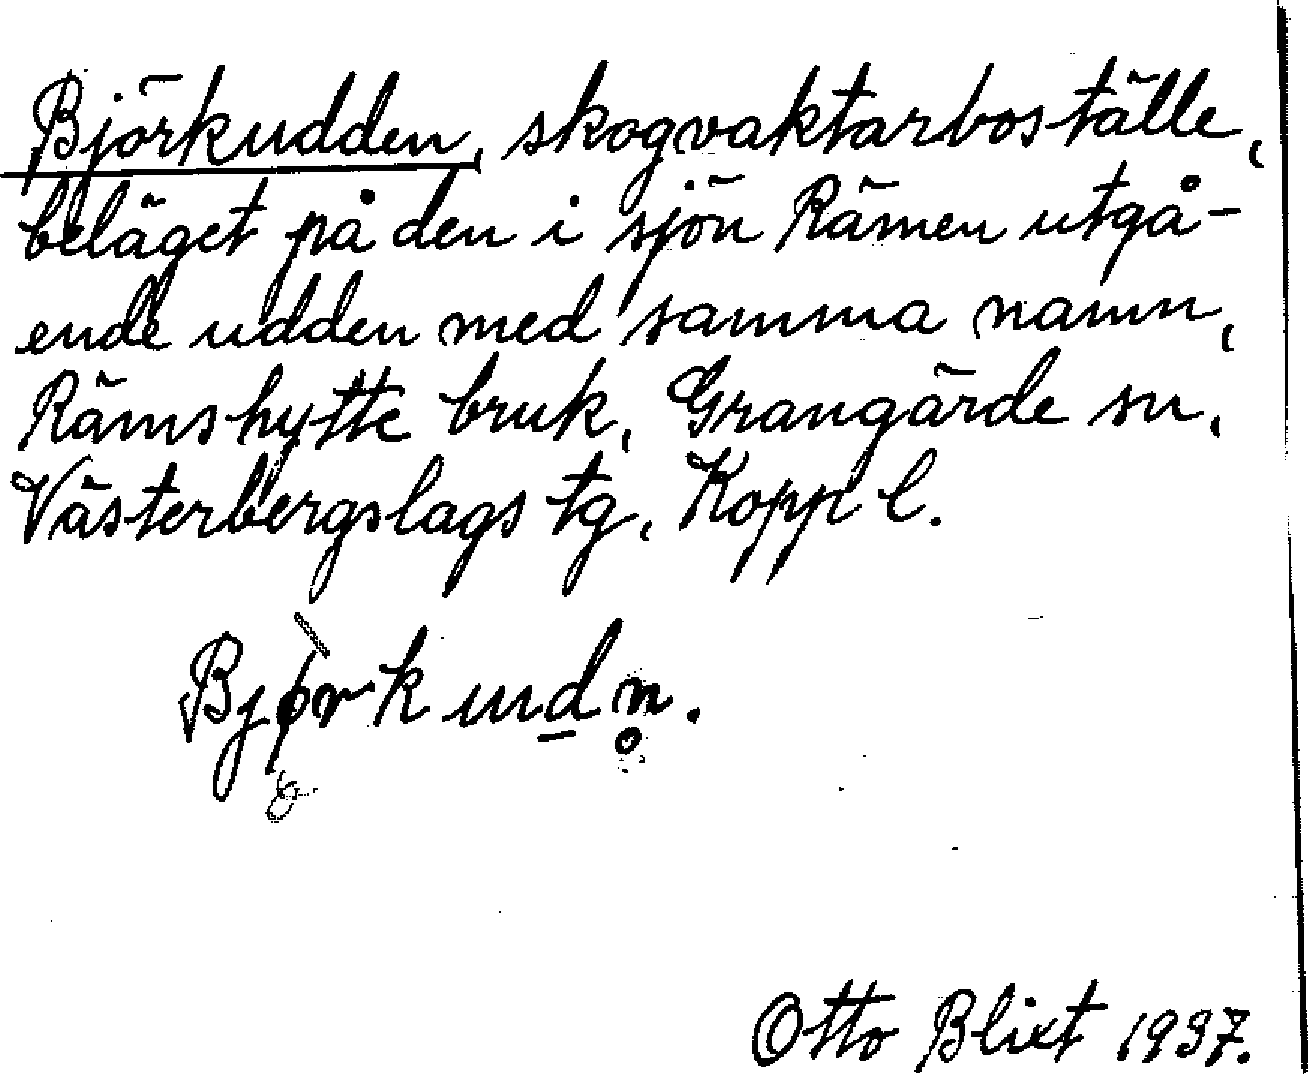 Björkudden, skogvaktarboställe,
beläget på den i sjön Rämen utgå-
ende udden med samma namn,
Rämshytte bruk, Grangärde sn,
Västerbergslags tg, Kopp l.
Bjørkudn̥.
Otto Blixt 1937.